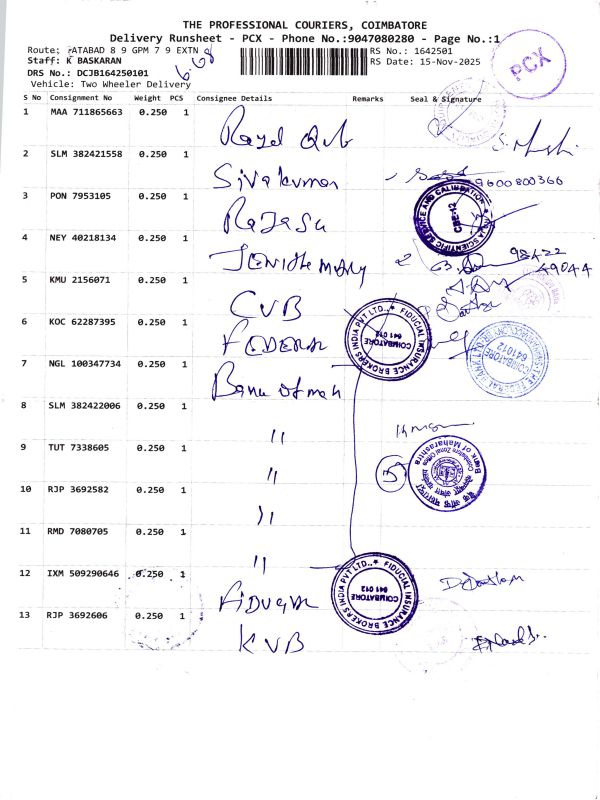 THE PROFESSIONAL COURIERS, COIMBATORE
Delivery Runsheet - PCX - Phone No.:9047080280 - Page No.:1
Route: PATABAD 8 9 GPM 7 9 EXTN
RS No.: 1642501
Staff: K BASKARAN
RS Date: 15-Nov-2025
DRS No.: DCJB164250101
Vehicle: Two Wheeler Delivery
PCX
S No Consignment No Weight PCS Consignee Details Remarks Seal & Signature
1 MAA 711865663 0.250 1
2 SLM 382421558 0.250 1 Sivakumar 9600800366
3 PON 7953105 0.250 1
SCIENTIFIC SERVICE AND CALIBRATION CBE-12
4 NEY 40218134 0.250 1 98422 49044
5 KMU 2156071 0.250 1 CUB
6 KOC 62287395 0.250 1 FEDERAL
FIDUCIAL INSURANCE BROKERS INDIA PVT LTD., COIMBATORE 641 012
7 NGL 100347734 0.250 1 Bank of mah
8 SLM 382422006 0.250 1 "
9 TUT 7338605 0.250 1 " 5
Bank of Maharashtra
10 RJP 3692582 0.250 1 "
11 RMD 7080705 0.250 1 "
12 IXM 509290646 0.250 1
FIDUCIAL INSURANCE BROKERS INDIA PVT LTD., COIMBATORE 641 012
13 RJP 3692606 0.250 1 KVB